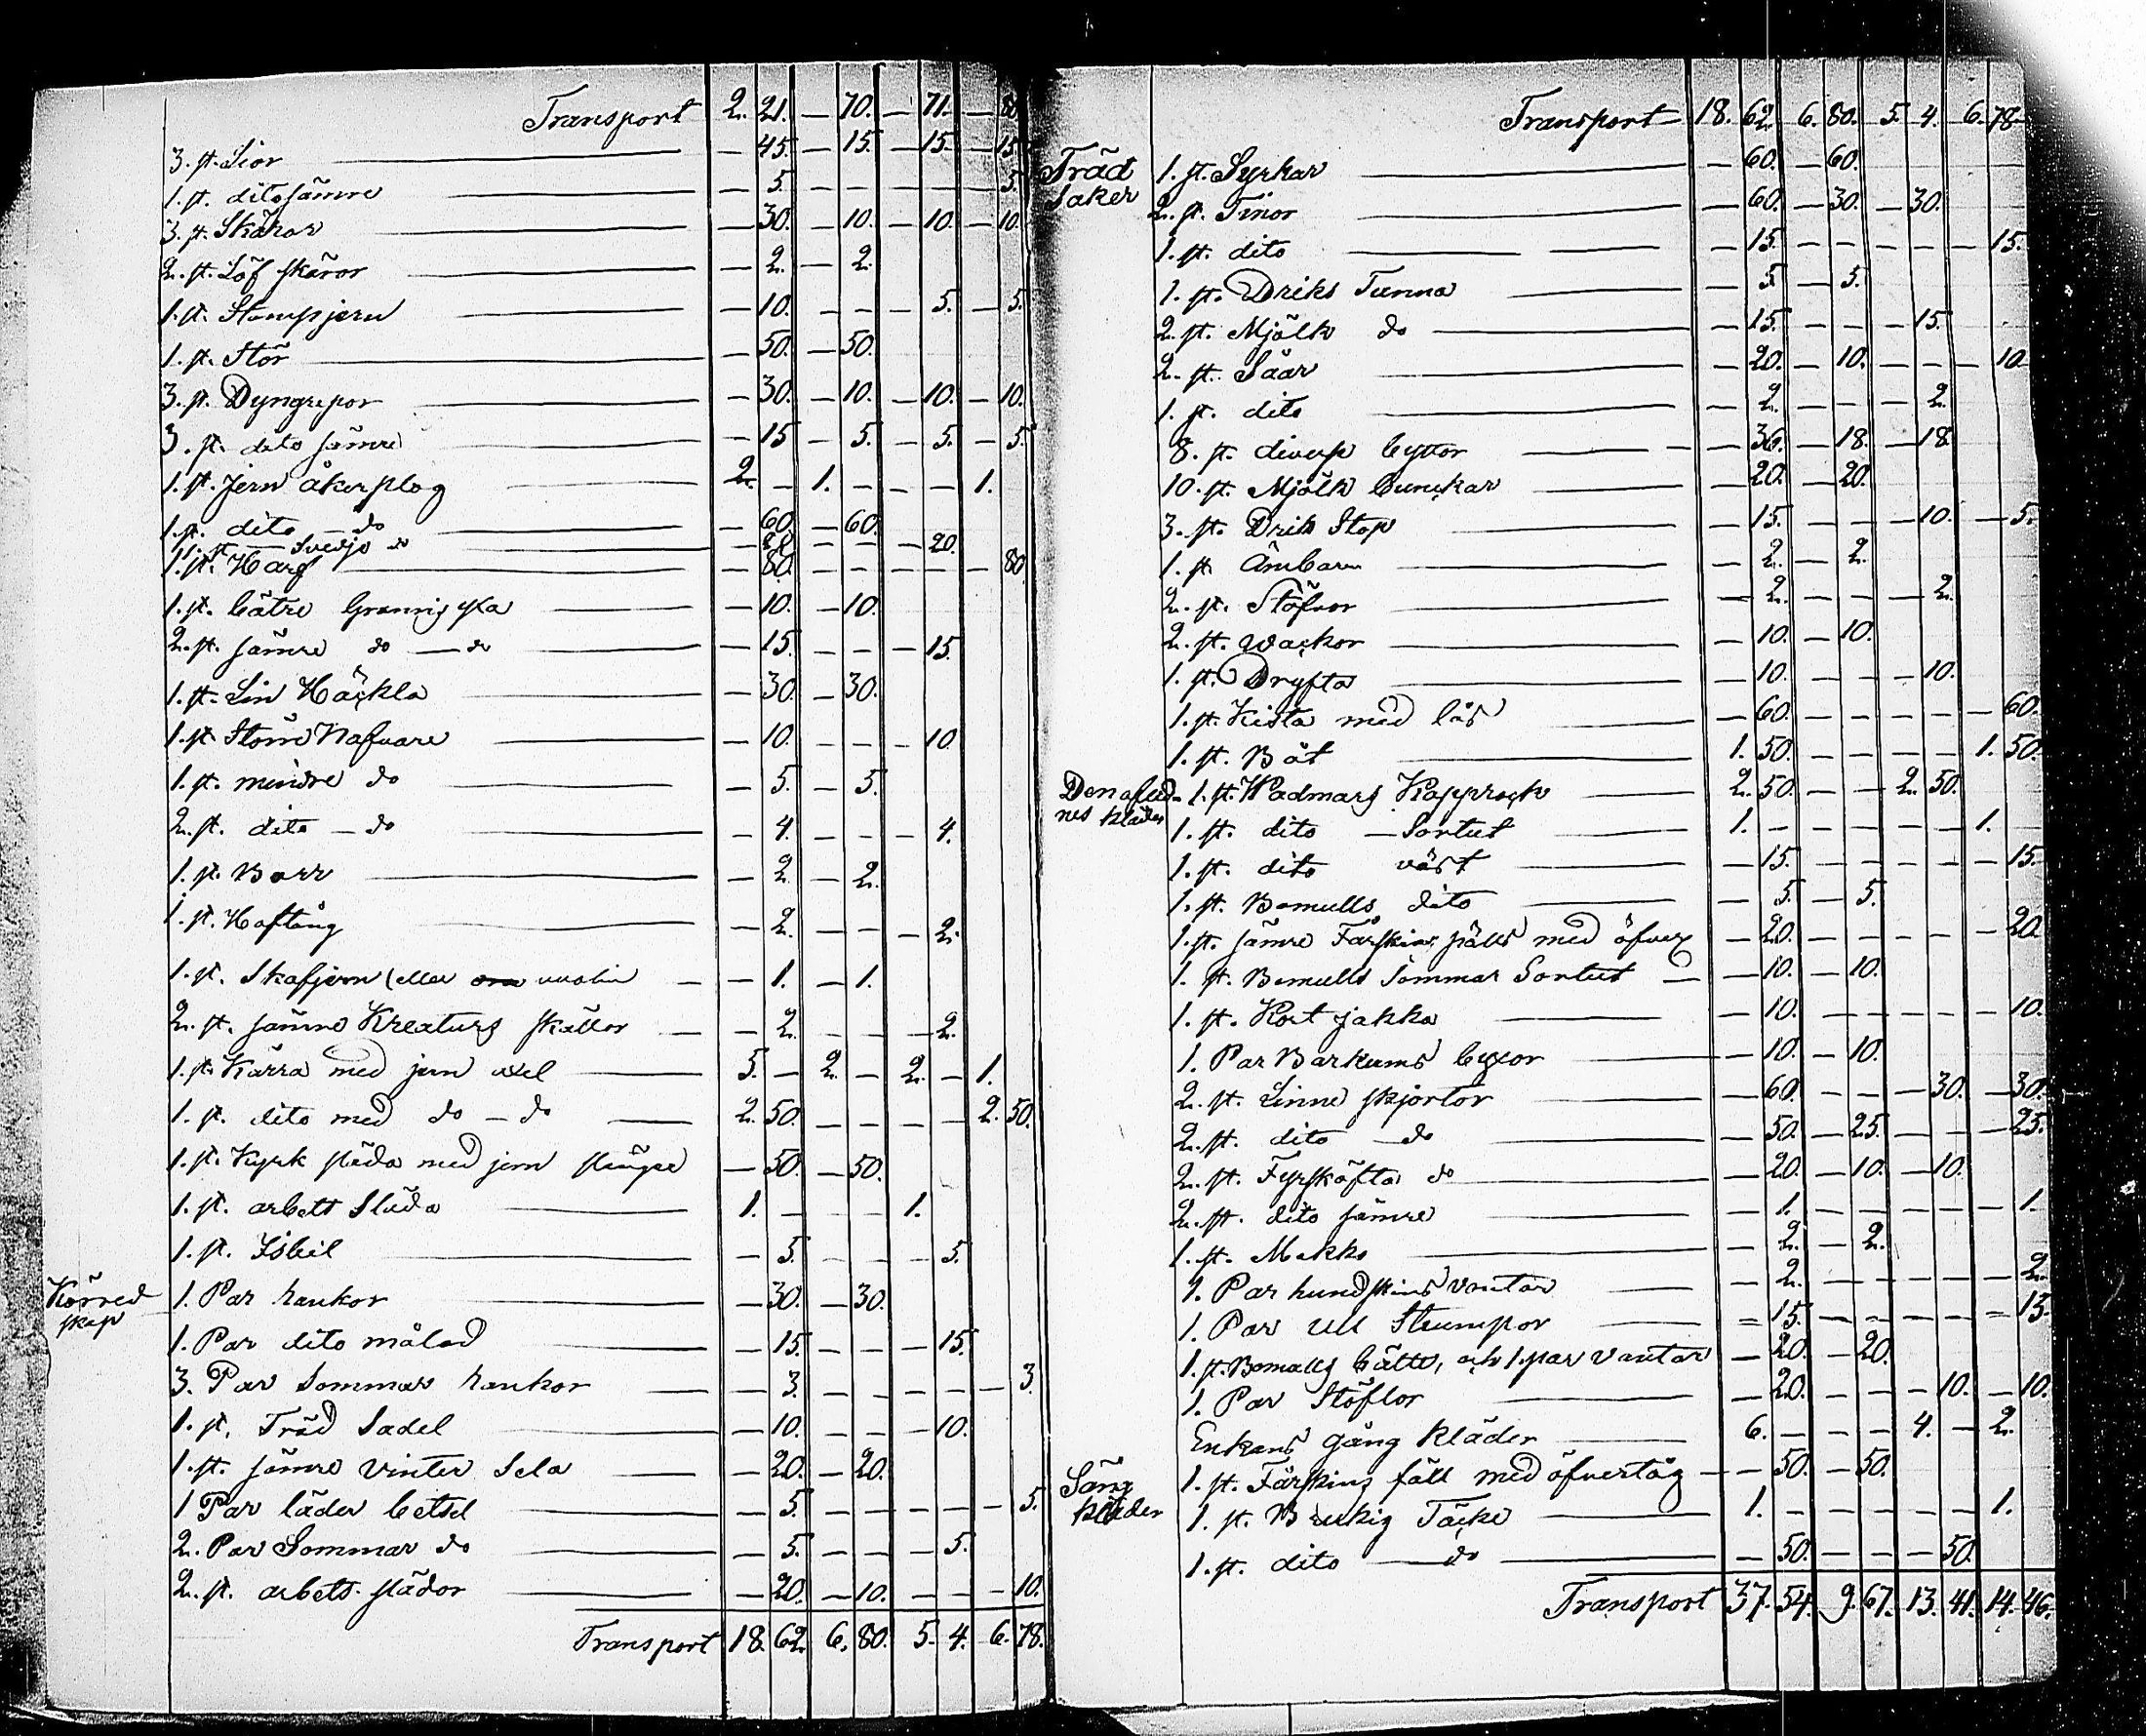 Transport 2. 21. — 70. — 71. — 80
3. st. Lior — 45. — 15. — 15. — 15.
1. st. dito sämre — 5. — — — — — 5.
3. st. Skäkar — 30. — 10. — 10. — 10.
2. st. Löf skäror — 2. — 2.
1. st. Stampjern — 10. — — — 5. — 5.
1. st. Stör — 50. — 50.
3. st. Dyngrepor — 30. — 10. — 10. — 10.
3. st. dito sämre — 15 — 5. — 5. — 5.
1. st. Jern åkerplog 2. — 1. — — — 1.
1. st. dito — do — 60. — 60.
1. st. — Svedje do — — — — 20.
1. st. Harf — 80. — — — — — 80.
1. st. bätre — 10. — 10.
2. st. sämre do — do — 15. — — — 15.
1. st. Lin Häckla — 30. — 30.
1. st. Större Nafvare — 10. — — — 10.
1. st. mindre do — 5. — 5.
2. st. dito — do — 4. — — — 4.
1. st. Borr — 2. — 2.
1. st. Hoftång — 2. — — — 2.
1. st. Skafjern (eller — 1. — 1.
2. st. sämre Kreaturs skällor — 2. — — — 2.
1. st. Kärra med jern axel 5. — 2. — 2. — 1.
1. st. dito med do — do 2. 50. — — — — 2. 50.
1. st. Kyrk släda med jern — 50. — 50.
1. st. arbets Släda 1. — — — 1.
1. st. Isbil — 5. — — — 5.
Körred
skap
1. Par rankor — 30. — 30.
1. Par dito målad — 15. — — — 15.
3. Par Sommar rankor — 3. — — — — — 3.
1. st. Träd Sadel — 10. — — — 10.
1. st. sämre vinter Sela — 20. — 20.
1 Par läder betsel — 5. — — — — — 5.
2. Par Sommar do — 5. — — — 5.
2. st. arbets slädor — 20. — 10. — — — 10.
Transport 18. 62. 6. 80. 5. 4. 6. 78.
Transport 18. 62. 6. 80. 5. 4. 6. 78.
Träd
saker
1. st. Syrkar — 60. — 60.
2. st. Tinor — 60. — 30. — 30.
1. st. dito — 15. — — — — — 15.
1. st. Driks Tunna — 5 — 5.
2. st. Mjölk do — 15. — — — 15.
2. st. Såar — 20. — 10. — — — 10
1. st. dito — 2. — — — 2.
8. st. diverse byttor — 36. — 18. — 18.
10. st. Mjölk bunckar — 20. — 20.
3. st. Drik Stop — 15. — — — 10. — 5.
1. st. Ämbare — 2. — 2.
2. st. Stöfvor — 2. — — — 2.
2. st. wackor — 10. — 10.
1. st. Dryfta — 10. — — — 10.
1. st. Kista med lås — 60. — — — — — 60.
1. st. Båt 1. 50. — — — — 1. 50.
Den aflid-
nes kläder
1. st. Wadmars Kapprock 2. 50. — — 2. 50.
1. st. dito — Sortut 1. — — — — — 1. —
1. st. dito väst — 15. — — — — — 15.
1. st. Bomulls dito — 5. — 5.
1. st. sämre Fårskins päls med öfver — 20. — — — — — 20.
1. st. Bomulls Sommar Sortut — 10. — 10.
1. st. Kort jakka — 10. — — — — — 10.
1. Par Barkums byxor — 10. — 10.
2. st. Linne skjortor — 60. — — — 30. — 30.
2. st. dito — do — 50. — 25. — — — 25.
2. st. Fyrskäfta do — 20. — 10. — 10.
2. st. dito sämre — 1. — — — — — 1.
1. st. Mekko — 2. — 2.
1. Par hundskins vantar — 2. — — — — — 2.
1. Par Ull Strumpor — 15. — — — — — 15.
1. st. Bomulls bälte, och 1. par vantar — 20. — 20.
1. Par Stöflor — 20. — — — 10. — 10.
Enkans gång kläder 6. — — — 4. — 2.
Säng
kläder
1. st. Fårskins fäll med öfvertåg — 50. — 50.
1. st. Brukig Täcke 1. — — — — — 1.
1. st. dito — do — 50. — — — 50.
Transport 37. 54. 9. 67. 13. 41. 14. 46.